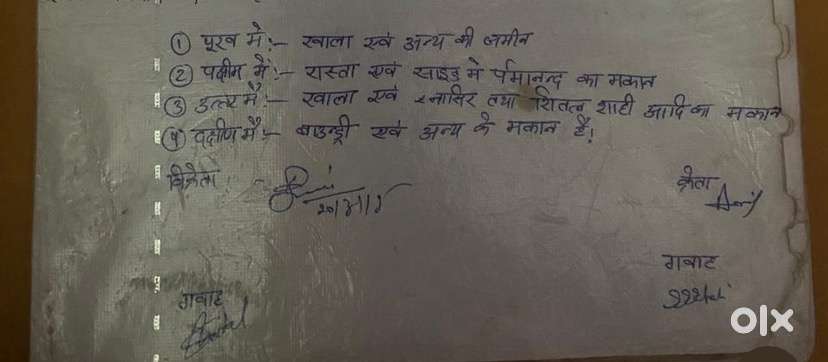 ① पूरब में :- खाला एवं अन्य की जमीन
② पक्षीम में :- रास्ता एवं साइड मे र्पमानन्द का मकान
③ उत्तर में :- खाला एवं नासिर तथा शितल शाही आदि का मकान
④ दक्षीण में :- बाउन्ड्री एवं अन्य के मकान है।
विक्रेता :-
क्रेता
गवाह
गवाह
olx